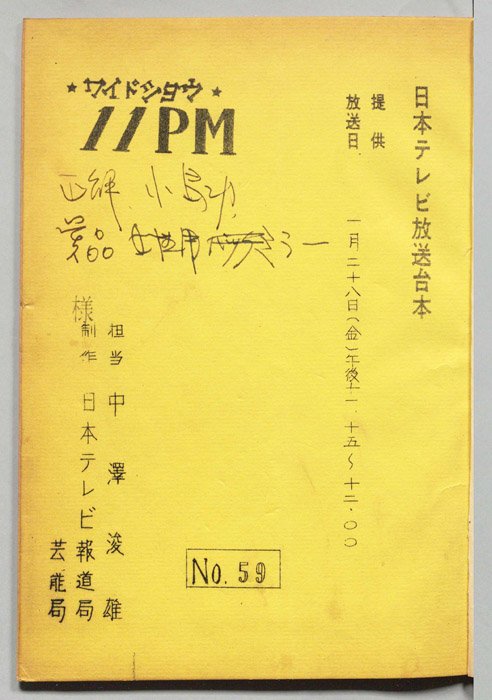 日本テレビ放送台本
提供
放送日 一月二十八日(金)午後十一.十五〜十二.〇〇
★ワイドショウ★
11PM
担当 中澤浚雄
様
制作 日本テレビ報道局
芸能局
No. 59